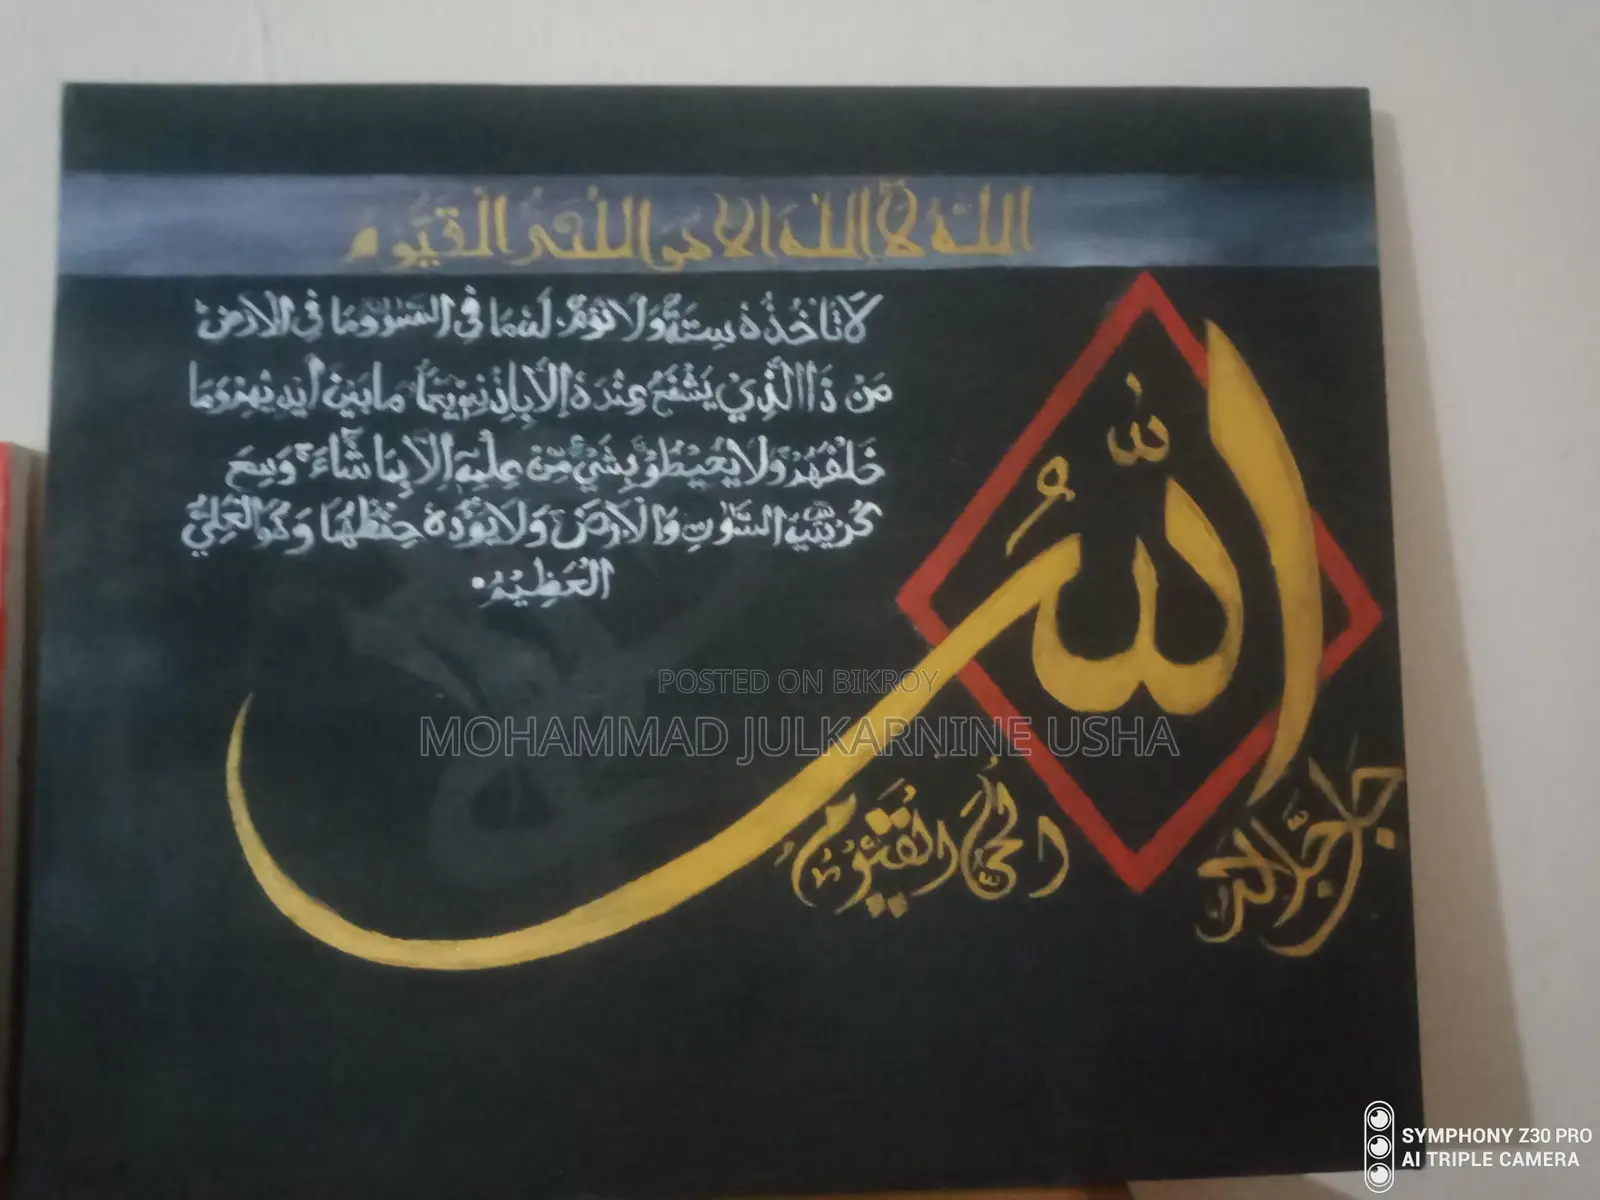 الله لا اله الا هو الحي القيوم
لَا تَاخُذُهٗ سِنَةٌ وَّلَا نَوْمٌ لَهٗ مَا فِی السَّمٰوٰتِ وَمَا فِی الْاَرْضِ
مَنْ ذَا الَّذِيْ يَشْفَعُ عِنْدَهٗ اِلَّا بِاِذْنِهٖ يَعْلَمُ مَا بَيْنَ اَيْدِيْهِمْ وَمَا
خَلْفَهُمْ وَلَا يُحِيْطُوْنَ بِشَيْءٍ مِّنْ عِلْمِهٖ اِلَّا بِمَا شَآءَ وَسِعَ
كُرْسِيُّهُ السَّمٰوٰتِ وَالْاَرْضَ وَلَا يَئُوْدُهٗ حِفْظُهُمَا وَهُوَ الْعَلِيُّ
الْعَظِيْمُ
الله
جل جلاله
الحي القيوم
POSTED ON BIKROY
MOHAMMAD JULKARNINE USHA
SYMPHONY Z30 PRO
AI TRIPLE CAMERA